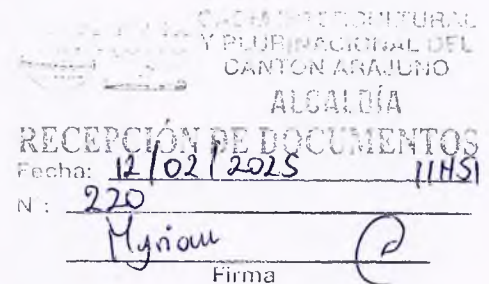 Y PLURINACIONAL DEL
CANTON ARAJUNO
ALCALDÍA
RECEPCIÓN DE DOCUMENTOS
Fecha: 12/02/2025 11H51
N : 220
Myriam
Firma